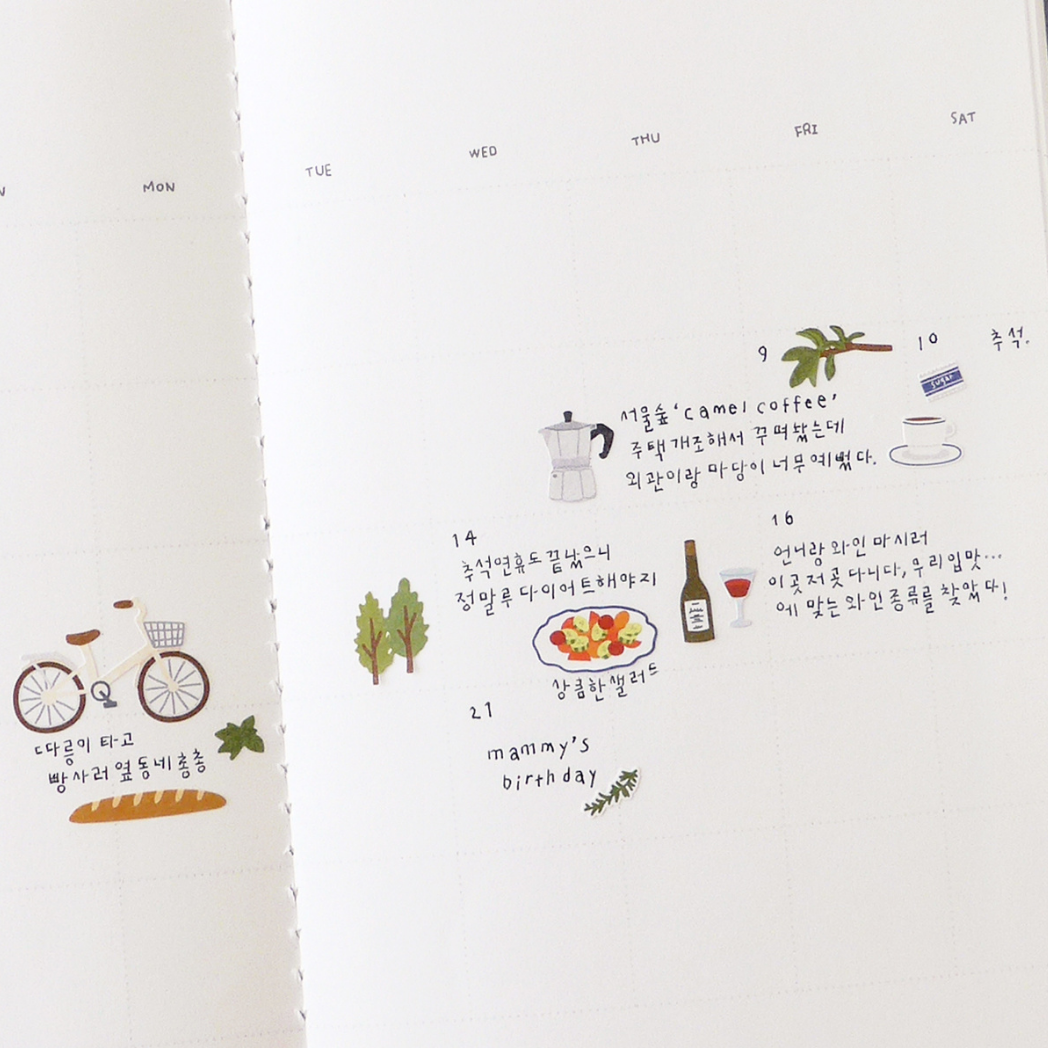 MON
TUE
WED
THU
FRI
SAT
9
10
추석.
sugar
서울숲 'camel coffee'
주택 개조해서 꾸며놨는데
외관이랑 마당이 너무 예뻤다.
14
추석연휴도 끝났으니
정말루 다이어트해야지
상큼한샐러드
16
언니랑 와인 마시러
이곳 저곳 다니다, 우리 입맛...
에 맞는 와인종류를 찾았다!
따릉이 타고
빵사러 옆동네 총총
21
mammy's
birthday